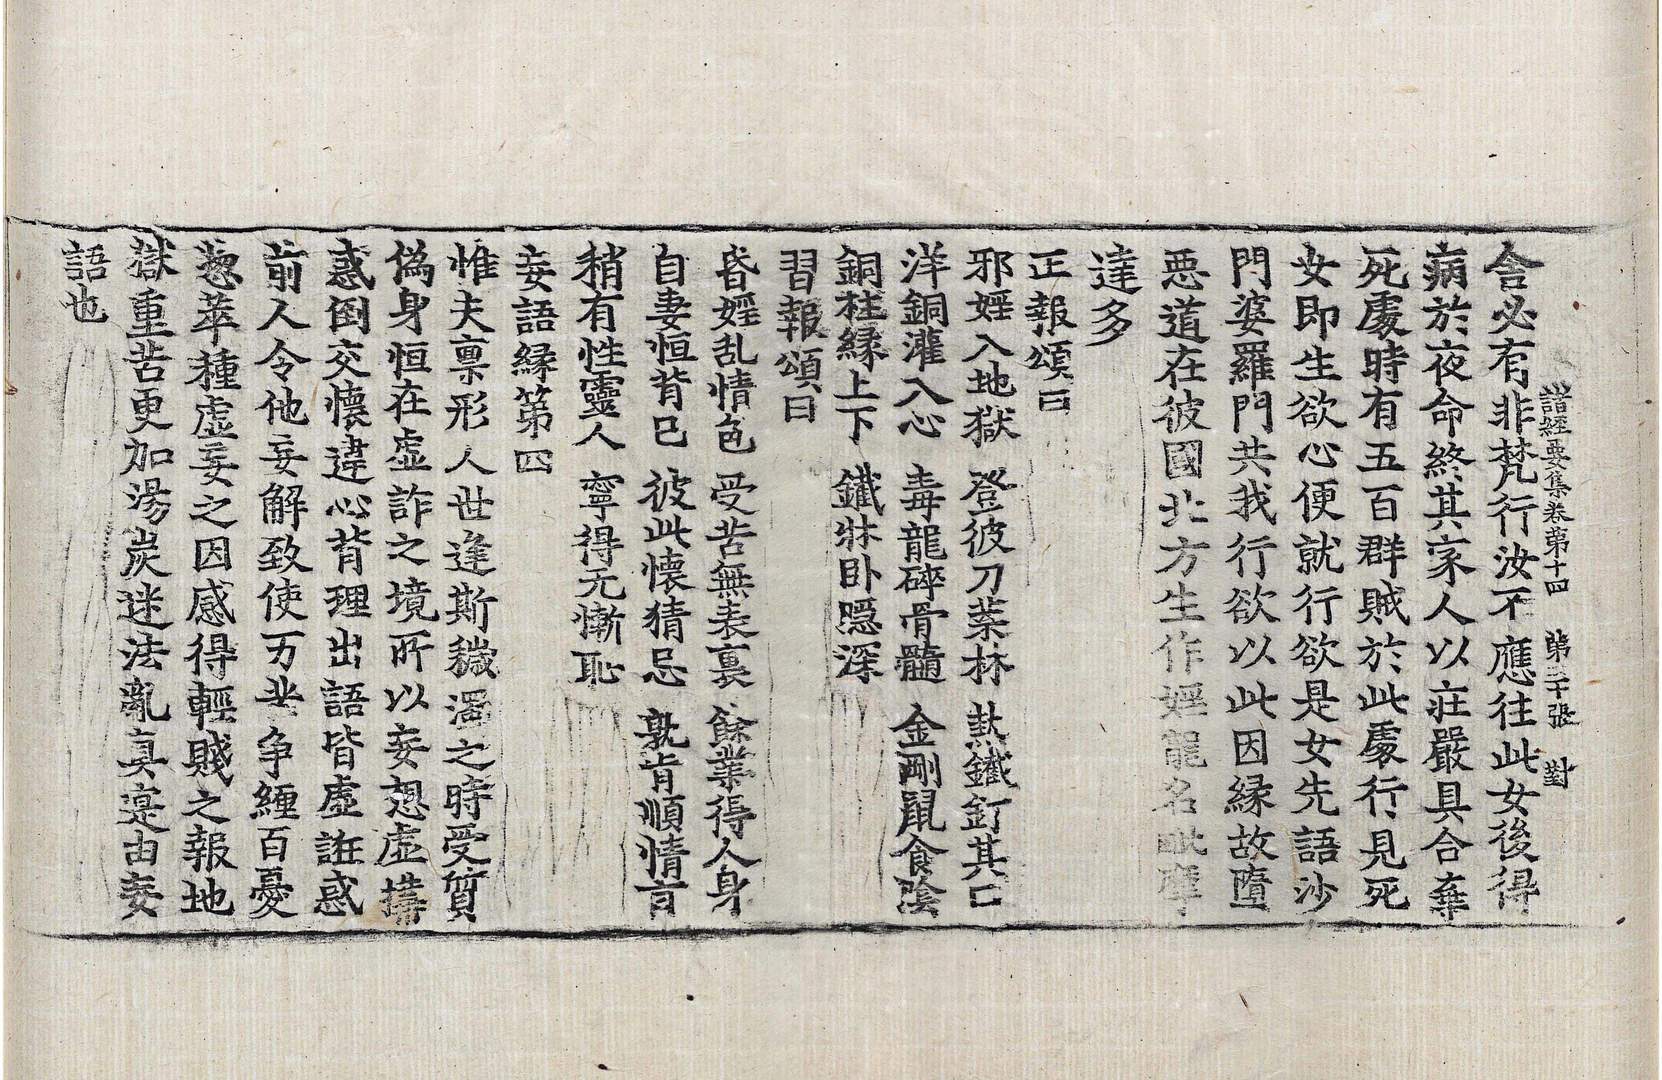 諸經要集卷第十四 第二十張 對
舍必有非梵行汝不應往此女後得
病於夜命終其家人以莊嚴具合棄
死處時有五百群賊於此處行見死
女即生欲心便就行欲是女先語沙
門婆羅門共我行欲以此因緣故墮
惡道在彼國北方生作婬龍名毗摩
達多
正報頌曰
邪婬入地獄 登彼刀葉林 熱鐵釘其口
洋銅灌入心 毒龍碎骨髓 金剛鼠食陰
銅柱緣上下 鐵牀卧隱深
習報頌曰
昏婬乱情色 受苦無表裏 餘業得人身
自妻恒背已 彼此懷猜忌 孰肯順情言
稍有性靈人 寧得无慚恥
妄語緣第四
惟夫禀形人世逢斯穢濁之時受質
偽身恒在虛詐之境所以妄想虛搆
惑倒交懷違心背理出語皆虛誑惑
前人令他妄解致使万𠀍争纏百憂
惣萃種虛妄之因感得輕賤之報地
獄重苦更加湯炭迷法亂真寔由妄
語也